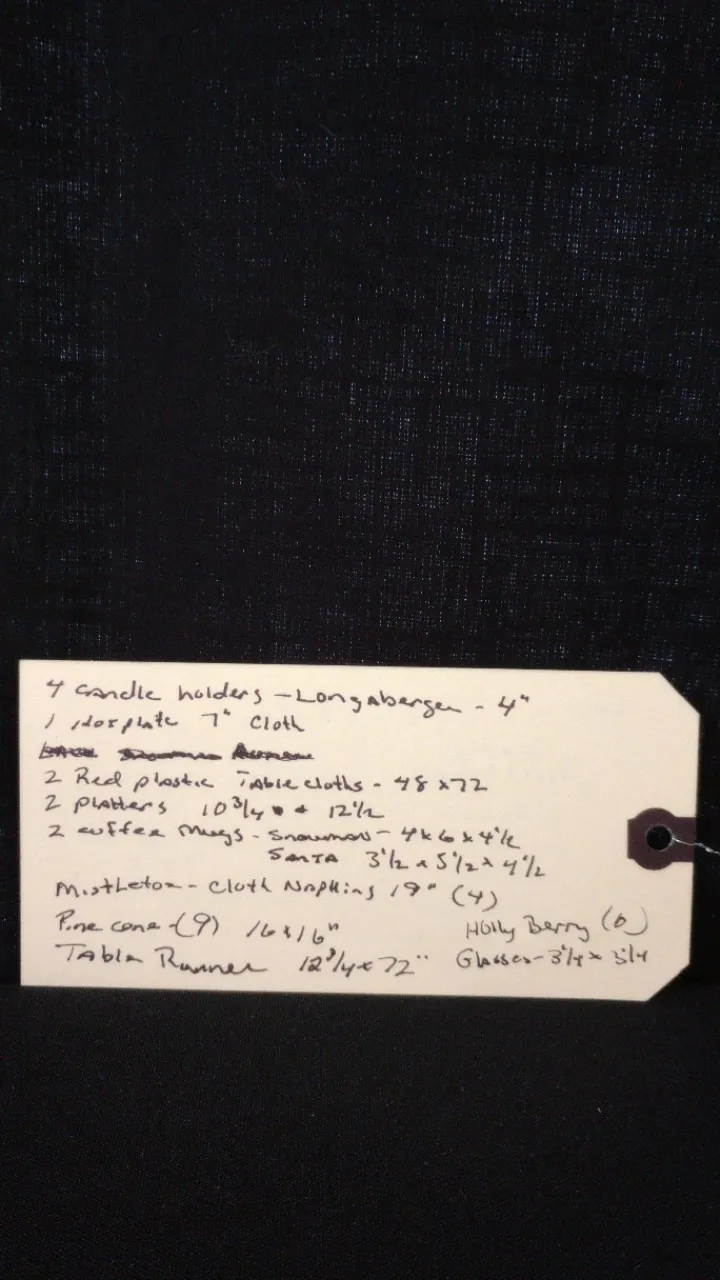 4 Candle holders - Longaberger - 4"
1 Hotplate 7" Cloth
2 Red plastic Table cloths - 48 x 72
2 platters 10 3/4 + 12 1/2
2 coffee Mugs - Snowman - 4 x 6 x 4 1/2
Santa 3 1/2 x 5 1/2 x 4 1/2
Mistletoe - Cloth Napkins 19" (4)
Pine cone - (9) 16 x 16"
Holly Berry (6)
Table Runner 12 3/4 x 72"
Glasses - 3 1/4 x 3 1/4